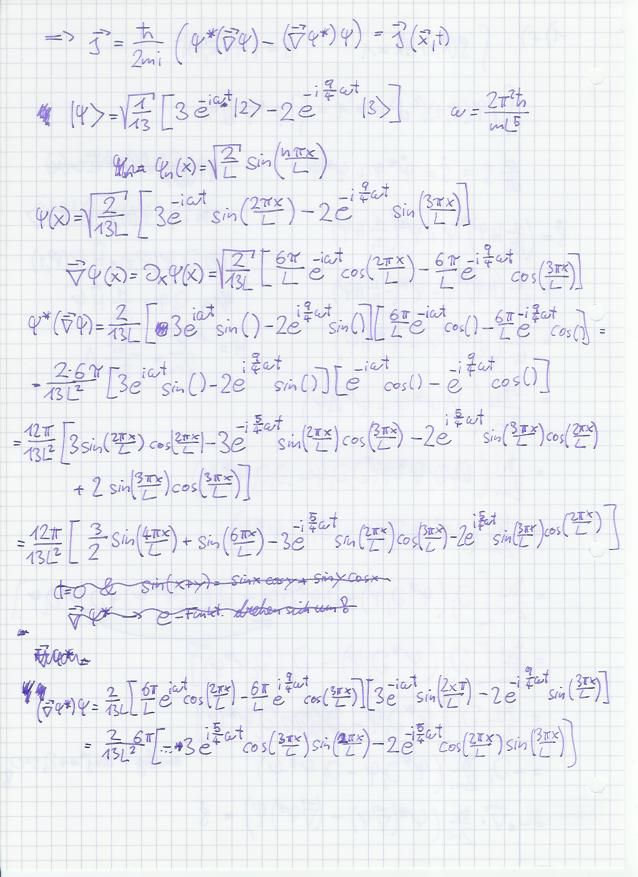 ⇒ j⃗ = ℏ/2mi (ψ*(∇⃗ψ) − (∇⃗ψ*)ψ) = j⃗(x⃗,t)
|ψ> = √(1/13) [3e^(-iωt)|2> − 2e^(-i 9/4 ωt)|3>] ω = 2π²ℏ/mL⁵
ψn(x) = √(2/L) sin(nπx/L)
ψ(x) = √(2/13L) [3e^(-iωt) sin(2πx/L) − 2e^(-i 9/4 ωt) sin(3πx/L)]
∇⃗ψ(x) = ∂xψ(x) = √(2/13L) [6π/L e^(-iωt) cos(2πx/L) − 6π/L e^(-i 9/4 ωt) cos(3πx/L)]
ψ*(∇⃗ψ) = 2/13L [3e^(iωt) sin() − 2e^(i 9/4 ωt) sin()][6π/L e^(-iωt) cos() − 6π/L e^(-i 9/4 ωt) cos()] =
= 2·6π/13L² [3e^(iωt) sin() − 2e^(i 9/4 ωt) sin()][e^(-iωt) cos() − e^(-i 9/4 ωt) cos()]
= 12π/13L² [3 sin(2πx/L) cos(2πx/L) − 3e^(-i 5/4 ωt) sin(2πx/L) cos(3πx/L) − 2e^(i 5/4 ωt) sin(3πx/L) cos(2πx/L)
+ 2 sin(3πx/L) cos(3πx/L)]
= 12π/13L² [3/2 sin(4πx/L) + sin(6πx/L) − 3e^(-i 5/4 ωt) sin(2πx/L) cos(3πx/L) − 2e^(i 5/4 ωt) sin(3πx/L) cos(2πx/L)]
t=0 & sin(x+y) = sinx cosy + siny cosx
∇⃗ψ* → e-Funkt. drehen sich um
(∇⃗ψ*)ψ = 2/13L [6π/L e^(iωt) cos(2πx/L) − 6π/L e^(i 9/4 ωt) cos(3πx/L)][3e^(-iωt) sin(2xπ/L) − 2e^(-i 9/4 ωt) sin(3πx/L)]
= 2 6π/13L² [... − 3e^(i 5/4 ωt) cos(3πx/L) sin(2πx/L) − 2e^(-i 5/4 ωt) cos(2πx/L) sin(3πx/L)]